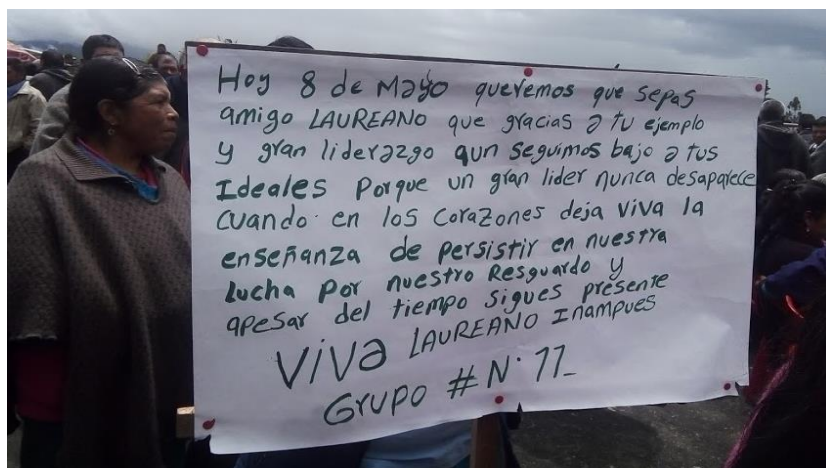 Hoy 8 de Mayo queremos que sepas
amigo LAUREANO que gracias a tu ejemplo
y gran liderazgo aun seguimos bajo a tus
Ideales Porque un gran lider nunca desaparece
cuando en los corazones deja viva la
enseñanza de Persistir en nuestra
Lucha Por nuestro Resguardo y
apesar del tiempo sigues presente
Viva LAUREANO Inampues
Grupo # N. 11_